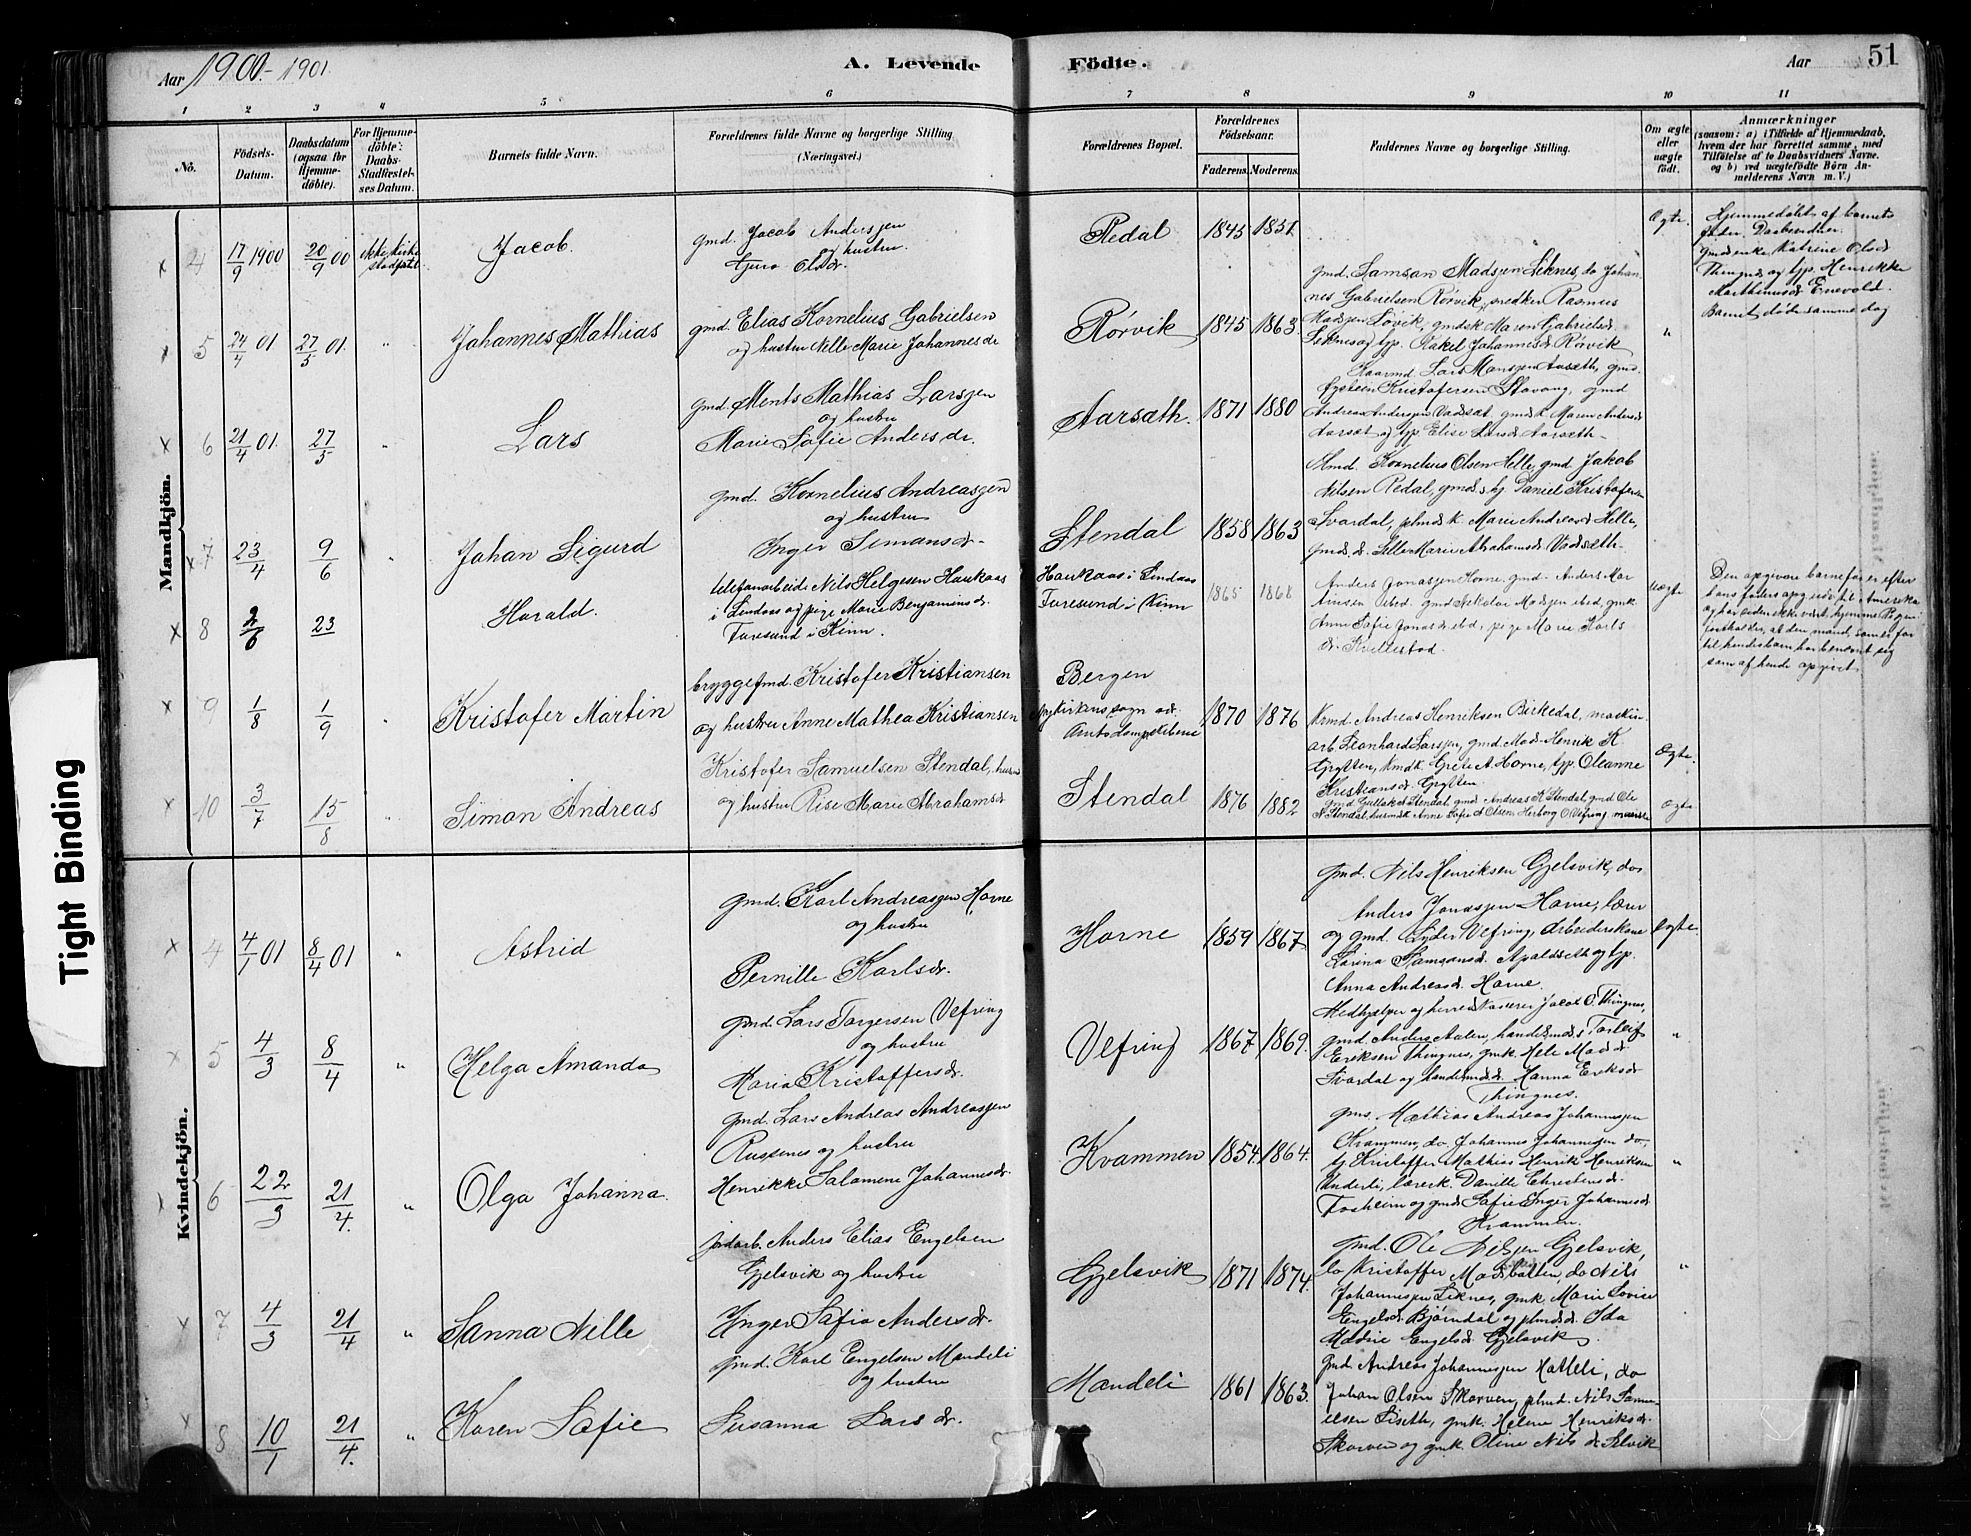 Aar 1900-1901.
A. Levende Födte.
Aar 51
1 2 3 4 5 6 7 8 9 10 11
No.
Födsels-
Datum.
Daabsdatum
(ogsaa for
Hjemme-
döbte).
For Hjemme-
döbte:
Daabs-
Stadfæstel-
ses Datum.
Barnets fulde Navn.
Forældrenes fulde Navne og borgerlige Stilling
(Næringsvei.)
Forældrenes Bopæl.
Forældrenes
Födselsaar.
Faderens. Moderens.
Faddernes Navne og borgerlige Stilling.
Om ægte
eller
uægte
födt.
Anmærkninger
(saasom: a) i Tilfælde af Hjemmedaab,
hvem der har forrettet samme, med
Tilföielse af to Daabsvidners Navne,
og b) ved uægtefödte Börn An-
melderens Navn m. V.)
Mandkjön.
x 4 17/9 1900 20/9 00 ikke kirke
Jacob.
gmd. Jacob Andersen
og hustru
Guro Olsdr.
Redal 1845 1851
Ægte.
Hjemmedøbt af barnets
fader. Daabsvidner:
Katrine Olsd.
og tjp. Henrikke
Barnet døde samme dag
x 5 24/4 01 27/5 01. "
Johannes Mathias
gmd. Elias Kornelius Gabrielsen
og hustru Nille Marie Johannesdr
Rørvik 1845 1863.
gmd. Samson Madssen Leknes, do Johan-
nes Gabrielsen Rørvik, Rasmus
Madssen Løvik, gmdsk Maren Gabrielsd.
Leknes og tjp. Rakel Johannesdr Rørvik
"
x 6 21/4 01. 27/5 "
Lars
gmd. Ments Mathias Larssen
og hustru
Marie Safie Andersdr.
Aarsæth. 1871 1880
Kaarmd. Lars Monssen Aarseth, gmd.
Eystein Kristofersen Stavang, gmd
Andreas Anderssen Vadsæt, gmdsk. Maren Andersd
Aarsæt og tjp. Elise Larsdr Aarsæth.
x 7 23/4 9/6 "
Johan Sigurd
gmd. Kornelius Andreassen
og hustru
Inger Simonsdr.
Stendal 1858 1863
Kornelius Olsen Helle, gmd Jakob
Nilsen Redal, gmds. Daniel Kristofersen
Svardal, plmdsk. Marie Andreasd Helle,
gmds. d. Lille Marie Abrahamsdr Vadsæth.
x 8 2/6 23
Harald.
telefonarbeider Nils Helgesen Haukaas
i Lindaas og pige Marie Benjaminsdr.
Faresund i Kinn.
Haukaas i Lindaas
Faresund i Kinn
1865 1868
Anders Jonassen Horne, gmd. Anders Mar-
tinsen ibid. gmd Nikolai Madssen ibid, gmk.
Anne Safie Jonasdr ibid, pige Marie Karls-
dr. Kvellestad.
Uægte
Den opgivne barnefar er efter
hans faders opg. udv. til Amerika
og har siden ikke vært hjemme. Pigen
fastholder, at den mand, som er far
til hendes barn har benævnt sig
som af hende opgivet
x 9 1/8 1/9 "
Kristofer Martin
bryggefmd. Kristofer Kristiansen
og hustru Anne Mathea Kristiansen
Bergen
Nykirkens sogn
1870 1876
Kmd. Andreas Henriksen Birkedal, maskin-
arb. Leonhard Larssen, gmd. Mads Henrik K
Grytten, kmdk. Grete A. Horne, tjp. Oleanne
Kristiansdr. Grytten
Ægte.
x 10 3/7 15/8 "
Simon Andreas
Kristofer Samuelsen Stendal,
og hustru Rise Marie Abrahamsdr
Stendal 1876 1882
Stendal, gmd Andreas K Stendal, gmd Ole
N Stendal, Anne Sofie A Olsen, Herborg O Vefring
Ægte
Kvindekjön.
x 4 4/1 01 8/4 01 "
Astrid
gmd. Karl Andreassen Horne
og hustru
Pernille Karlsdr.
Horne 1859 1867
gmd. Nils Henriksen Gjelsvik, do
Anders Jonassen Horne, lærer
og gmd. Vefring, Arbeiderskone
Larina Samsonsd. Apaldseth og tjp.
Anna Andreasd. Horne.
Ægte.
x 5 4/3 8/4 "
Helga Amanda
gmd. Lars Torgersen Vefring
og hustru
Maria Kristoffersdr.
Vefring 1867 1869.
Medhjælper og herredskasserer Jacob O. Thingnes,
gmd Anders Aalen, handelsmds. Torleif
Eriksen Thingnes, gmk. Hele Madsdr
Svardal og handelsmdsd. Hanna Eriksdr
Thingnes.
"
x 6 22/3 21/4. "
Olga Johanna.
gmd. Lars Andreas Andreassen
Russenes og hustru
Henrikke Salomine Johannesdr.
Kvammen 1854. 1864.
gms. Mathias Andreas Johannessen
Kvammen, do Johannes Johannessen do,
tj. Kristoffer Mathias Henrik Henriksen
Underli, lærersk. Danille Christensdr.
Fosheim og gmd Safie Inger Johannesdr
Kvammen.
"
x 7 4/3 21/4 "
Sanna Nille
jordarb. Anders Elias Engelsen
Gjelsvik og hustru
Inger Safia Andersdr.
Gjelsvik 1871 1874.
gmd. Ole Nilssen Gjelsvik,
do Kristoffer Madsbatten, do Nils
Johannessen Leknes, gmk. Marie Lovise
Engelsdr Bjørndal og plmdsd. Ida
Malene Engelsdr. Gjelsvik.
"
x 8 10/1 21/4. "
Karen Safie
gmd. Karl Engelsen Mandeli
og hustru
Susanna Larsdr.
Mandeli 1861 1863.
gmd Andreas Johannessen Hatleli, do
Johan Olsen Skorven, plmd. Nils Samu-
elsen Liseth, gmk. Helene Henriksdr.
Skorven og gmk. Oline Nilsdr. Selvik
Tight Binding